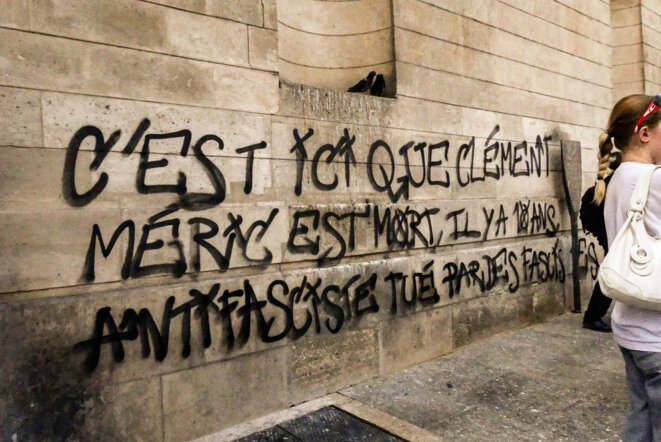 C'EST ICI QUE CLÉMENT
MÉRIC EST MORT, IL Y A 10 ANS,
ANTIFASCISTE TUÉ PAR DES FASCISTES